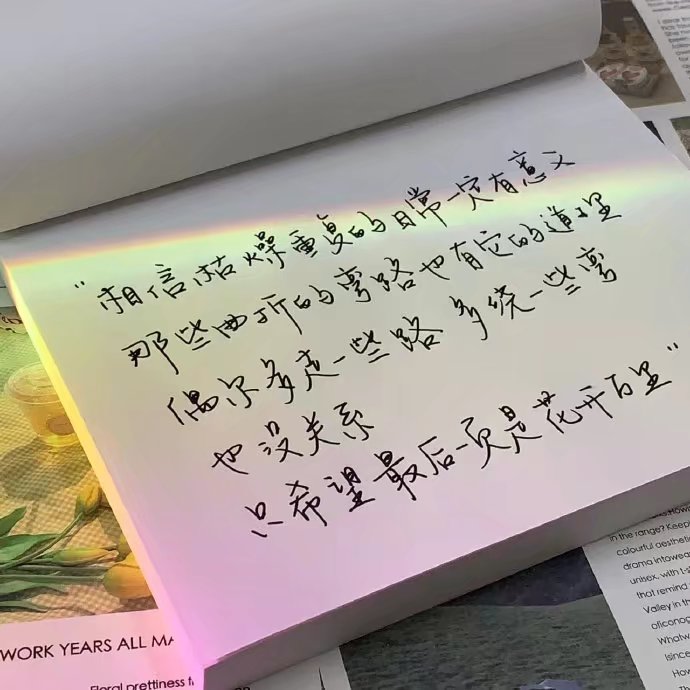 "相信枯燥重复的日常一定有意义
那些曲折的弯路也有它的道理
偶尔多走一些路 多绕一些弯
也没关系
只希望最后一页是花开百里"
WORK YEARS ALL MA
Floral prettiness
in the range? Keep
colourful aesthetic
drama intowea
unisex, with t-s
that remind
Valley in th
oficonog
Whatw
Isince
How